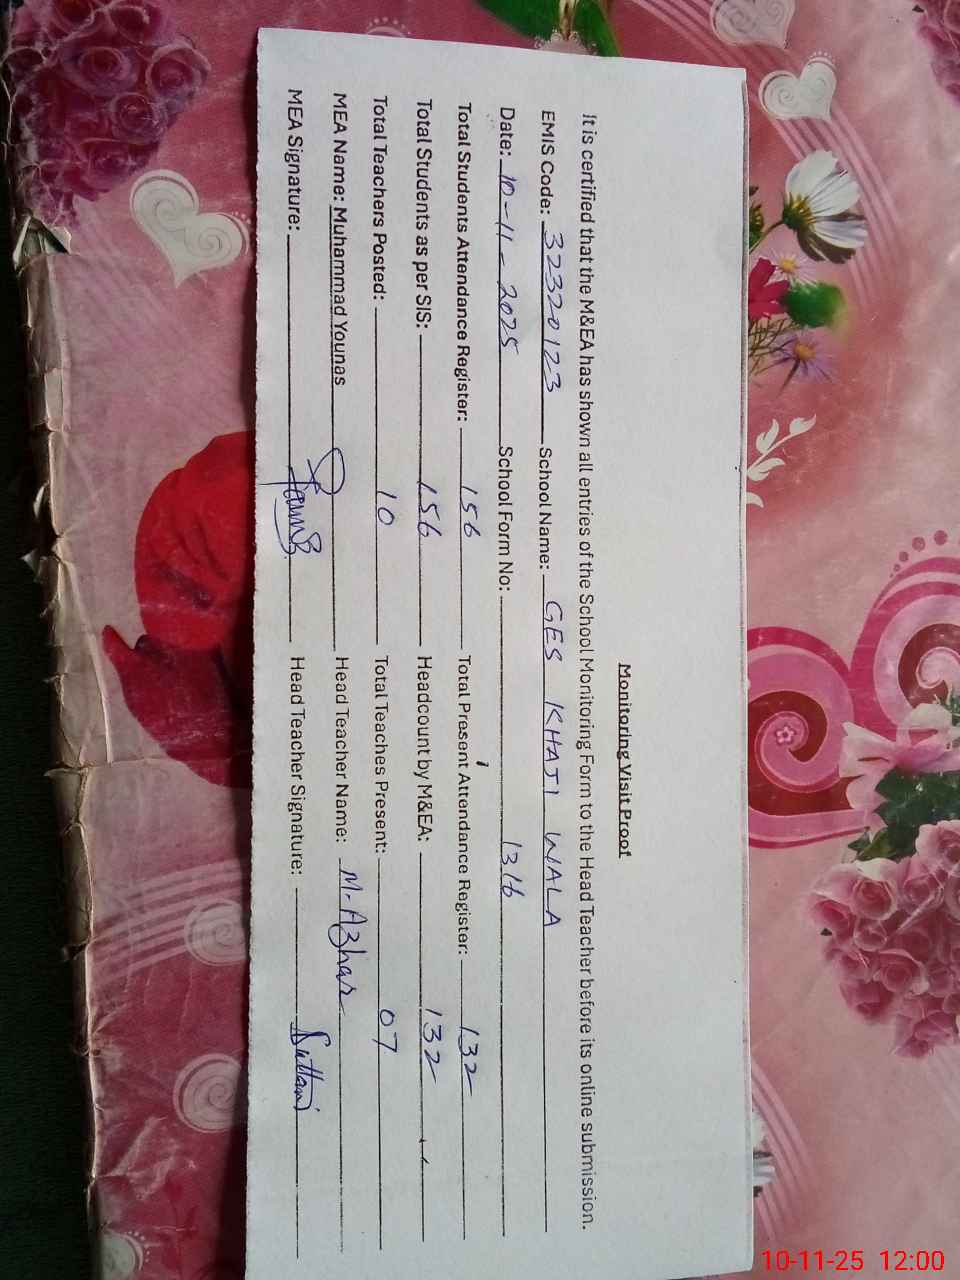 Monitoring Visit Proof
It is certified that the M&EA has shown all entries of the School Monitoring Form to the Head Teacher before its online submission.
EMIS Code: 32320123 School Name: GES KHAJI WALA
Date: 10-11-2025 School Form No: 1316
Total Students Attendance Register: 156 Total Present Attendance Register: 132
Total Students as per SIS: 156 Headcount by M&EA: 132
Total Teachers Posted: 10 Total Teaches Present: 07
MEA Name: Muhammad Younas Head Teacher Name: M. Azhar
MEA Signature: Head Teacher Signature:
10-11-25 12:00